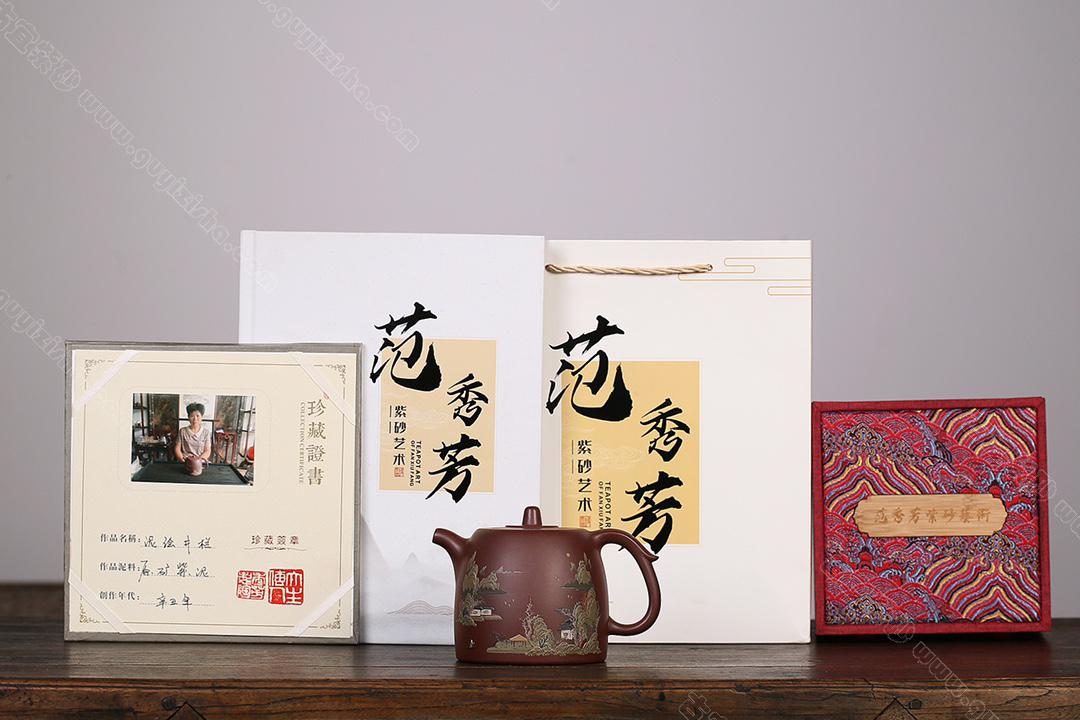 古宜紫砂 www.guyizisha.com
珍藏證書
COLLECTION CERTIFICATE
作品名稱: 泥绘井栏
珍藏簽章
作品泥料: 原矿紫泥
創作年代: 辛丑年
范秀芳
紫砂艺术
TEAPOT ART
OF FAN XIU FANG
范秀芳
紫砂艺术
TEAPOT ART
OF FAN XIU FANG
范秀芳紫砂藝術